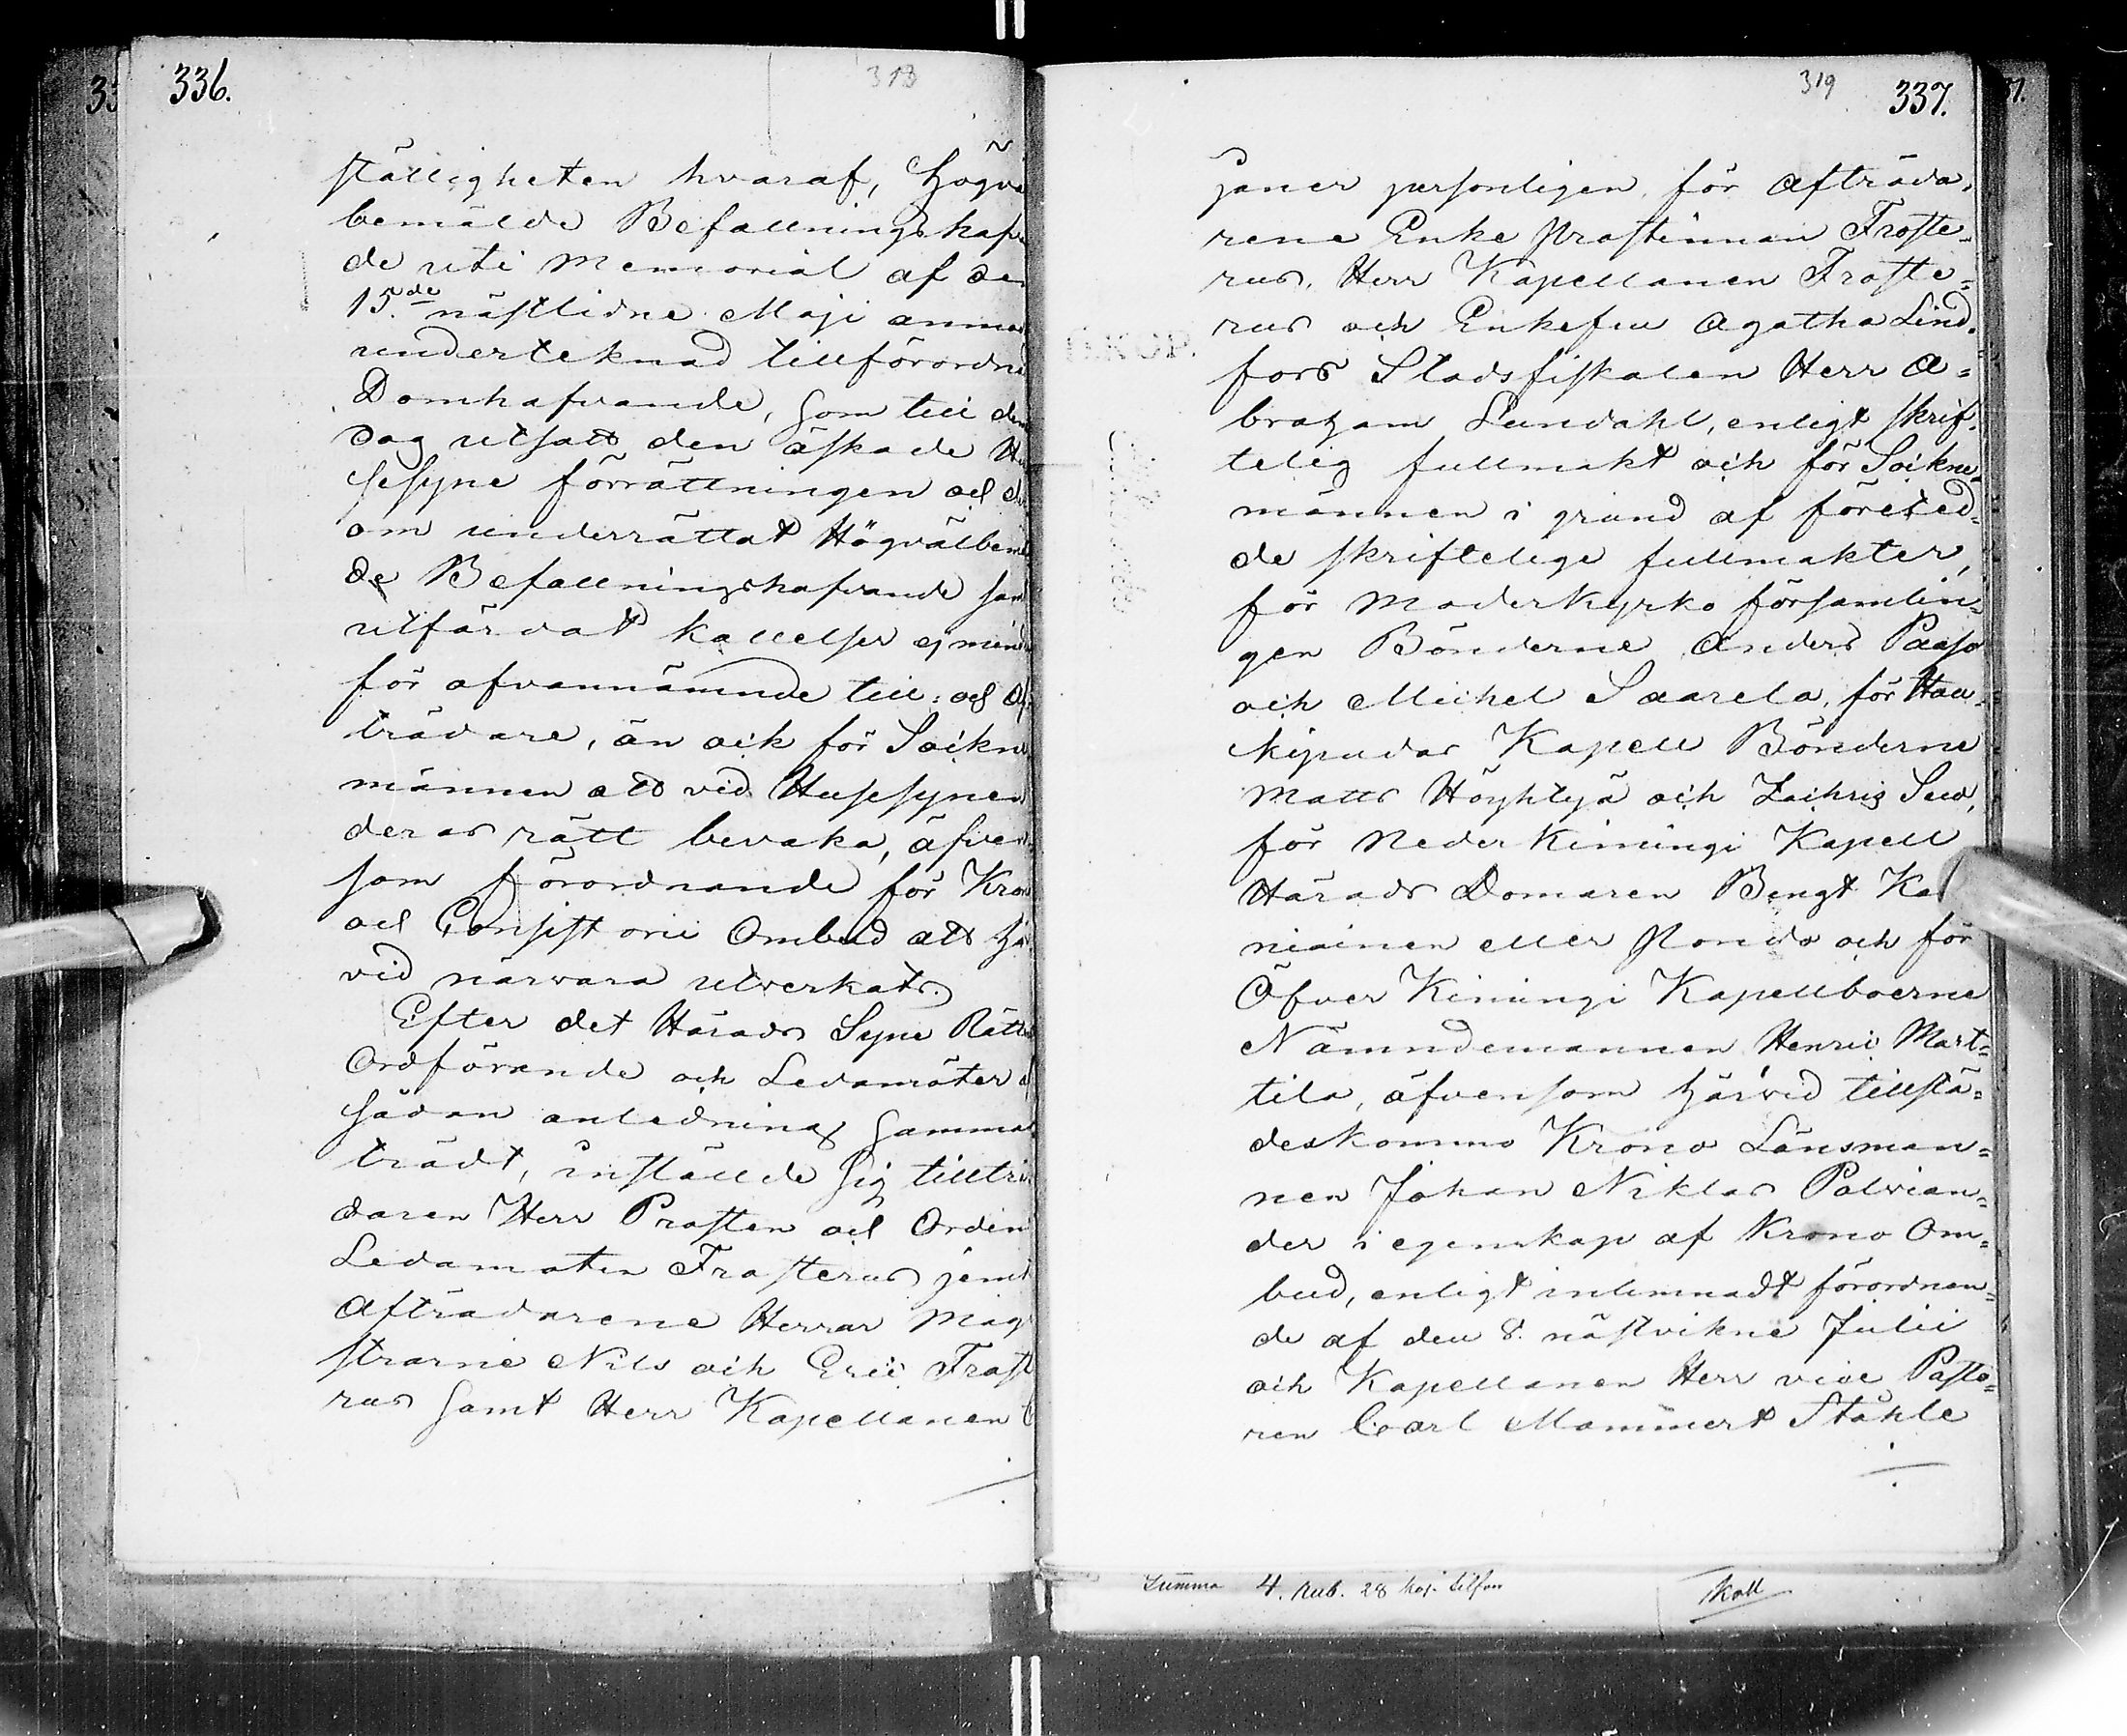 336.
313
ställigheten hvaraf, Högvä
bemälde Befallningshafva
de uti Memorial af de
15.de nästlidne Maji anmo
undertecknad tillförordna
Domhafvande, som till den
dag utsatt den äskade Hu
sesyne förrättningen och der
om underrättat Högvälbemä
de Befallningshafvande samt
utfärdat kallelser ej mind
för ofvannämnde till: och Af
trädare, än och för Sockne
männen att vid Husesynen
deras rätt bevaka, äfven
som förordnande för Krono
och Consistorii Ombud att här
vid närvara utverkats.
Efter det Härads Syne Rätte
Ordförande och Ledamöter af
sådan anledning samman
trädt, instälde sig tillträ
daren Herr Prosten och Ordin
Ledamoten Frosterus jemt
Afträdarene Herrar Mag
strarne Nils och Eric Frost
rus samt Herr Kapellanen C
319
337.
janer personligen, för afträda,
rene Enke Prostinnan Froste-
rus, Herr Kapellanen Froste=
rus och Enkefru Agatha Lind,
fors Stadsfiskalen Herr A=
braham Lundahl, enligt skrif,
telig fullmakt och för Sockne
männen i grund af företed,
de skriftelige fullmakter,
för Moderkyrko församlin,
gen Bönderne Anders Paaso
och Michel Saarela, för Hau,
kipudas Kapell Bönderne
Matts Höyhtyä och Zachris Suo,
för Neder Kiimingi Kapell
Härads Domaren Bengt Ka
niainen eller Ronda och för
Öfver Kiimingi Kapellboerne
Nämndemannen Henric Mart=
tila, äfvensom härvid tillstä=
deskommo Krono Länsman=
nen Johan Niklas Polvian=
der i egenskap af Krono Om=
bud, enligt inlemnadt förordnan=
de af den 8. nästvikne Julii
och Kapellanen Herr vice Pasto=
ren Carl Mommert Ståhle
Summa 4. Rub. 28 kop. Silfver